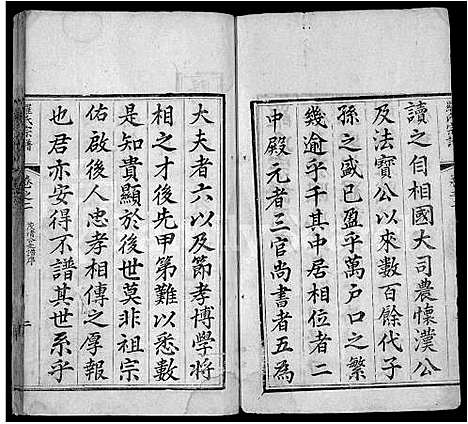 讀之自相國大司農懷漢公
及法寶公以來數百餘代子
孫之盛已盈乎萬戶口之繁
幾逾乎千其中居相位者二
中殿元者三官尚書者五為
大夫者六以及節孝博學將
相之才後先甲第難以悉數
是知貴顯於後世莫非祖宗
佑啟後人忠孝相傳之厚報
也君亦安得不譜其世系乎